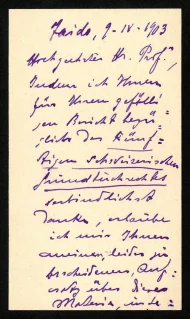 Faido, 9-IV-1903
Hochgeehrter Hr. Prof.,
Indem ich Ihnen
für Ihren gefälli-
gen Bericht bezüg-
lich des künf-
tigen schweizerischen
Grundbuchrechtes
verbindlichst
danke, erlaube
ich mir Ihnen
meinen leider zu
bescheidenen Auf-
satz über diese
Materie, inse-